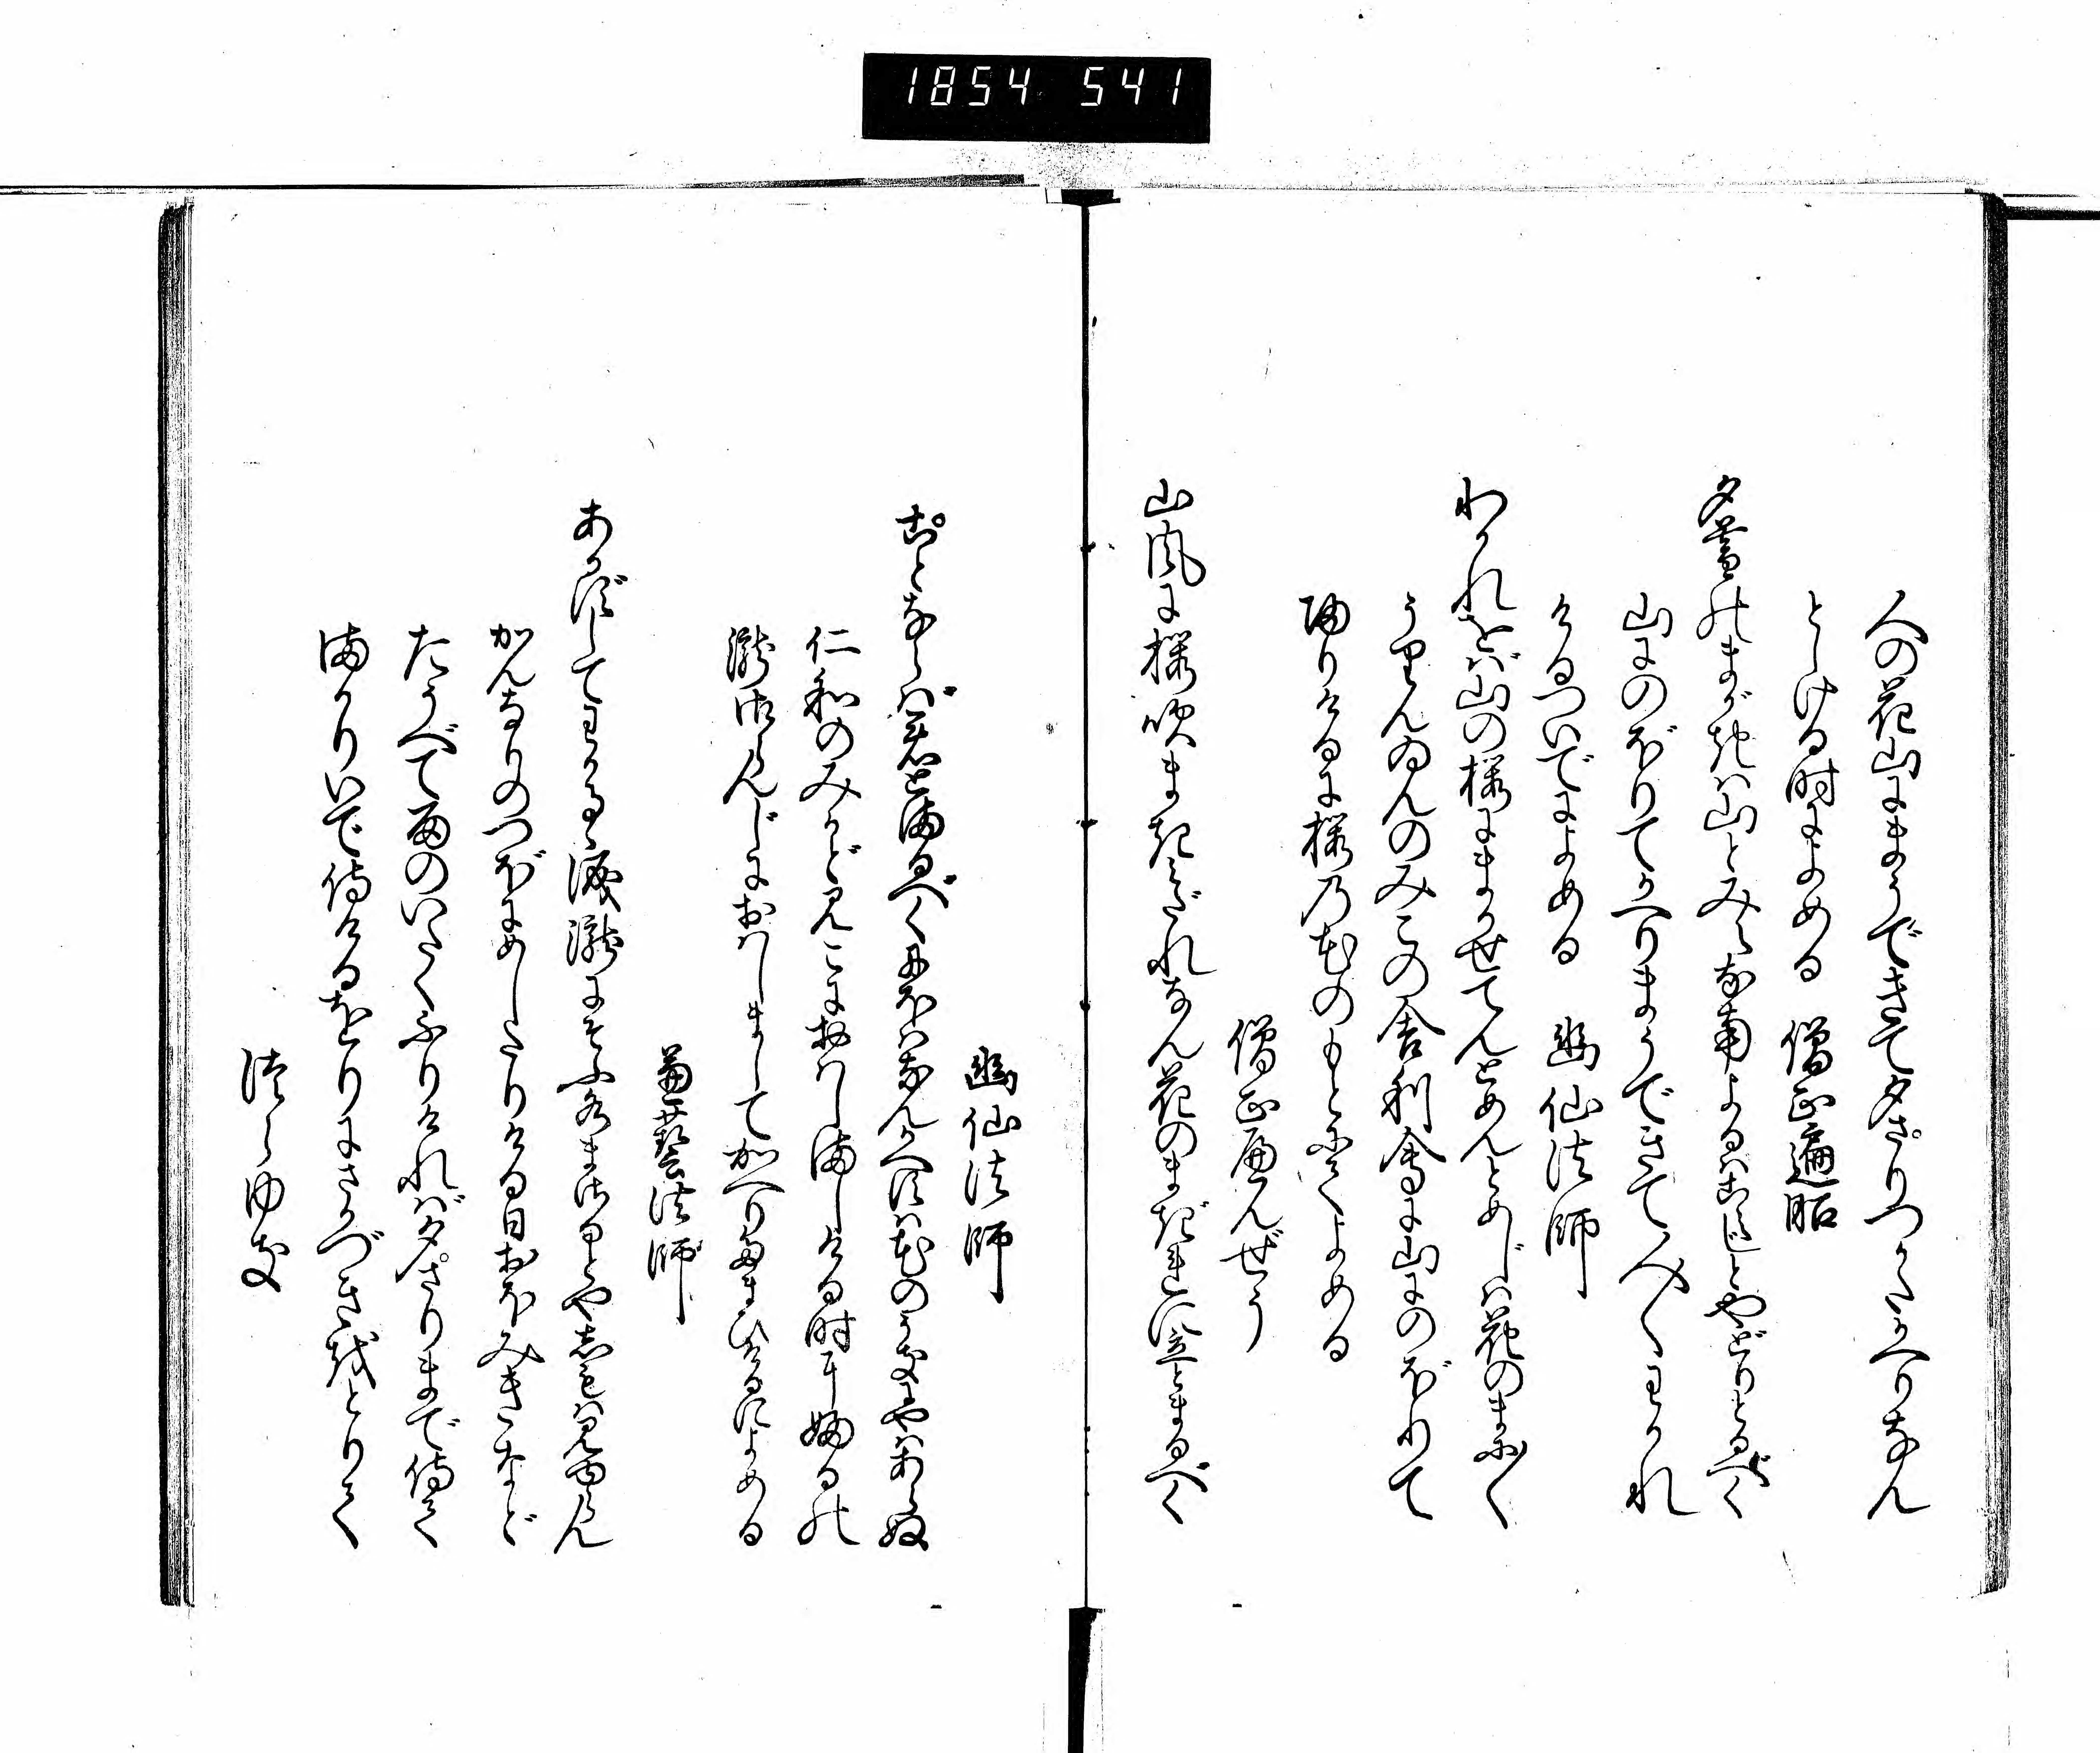 1854 541
人の花山にまうできて夕さりつかたかへりなん
としける時によめる 僧正遍昭
夕暮のまがきは山とみえななんよるはこえじとやどりとるべく
山にのぼりてかへりまうできて人〳〵わかれ
けるついでによめる 幽仙法師
わかれをば山の桜にまかせてんとめんとめじは花のまに〳〵
うりんゐんのみこの舎利會に山にのぼりて
帰りけるに桜乃花のもとにてよめる
僧正へんぜう
山風に桜吹まきみだれなん花のまぎれに立とまるべく
幽仙法師
ことならば君とまるべくにほはなんかへすは花のうきにやはあらぬ
仁和のみかどみこにおはしましける時に布る の
瀧御らんじにおはしましてかへりたまひけるによめる
兼藝法師
あかずしてわかるゝ涙瀧にそふ水まさるとやしもは見ゆらん
かんなりのつぼにめしたりける日おほみきなど
たうべて雨のいたくふりければ夕さりまで侍て
まかりいで侍けるをりにさかづきをとりて
つらゆき